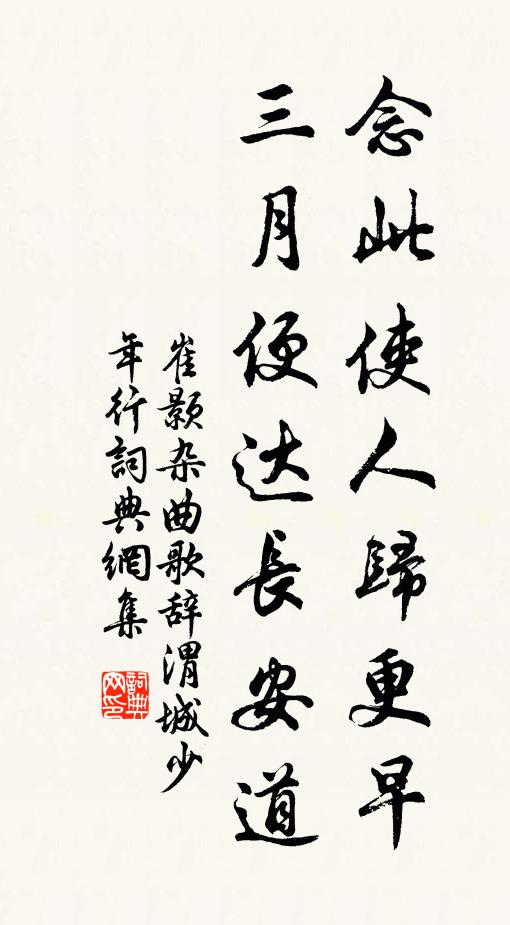 念此使人歸更早
三月便达長安道
崔颢杂曲歌辞渭城少
年行詞典網集
詞典
网印